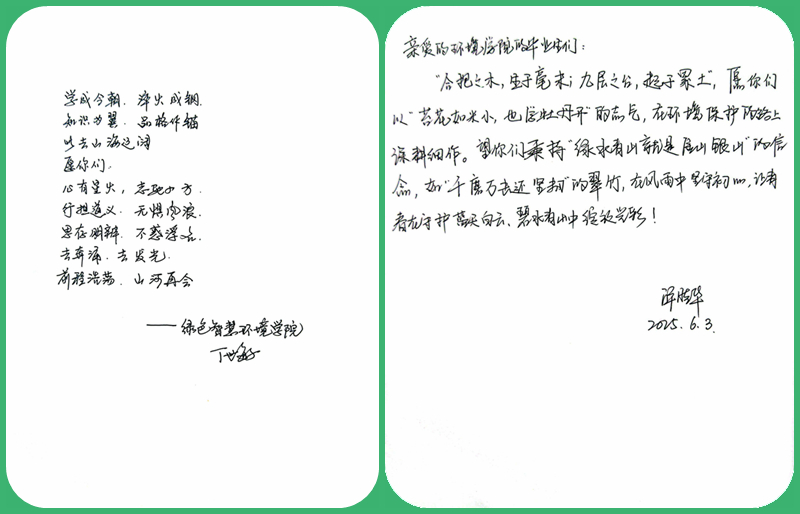 学成今朝．淬火成钢
知识为翼．品格作锚
以去山海辽阔
愿你们．
心有星火，奔赴四方
行担道义．无惧风浪
思存明辨．不惑浮名
去奔涌．去发光．
前程浩荡．山河再会
——绿色智慧环境学院
丁世敏
亲爱的环境学院的毕业生们：
"合抱之木，生于毫末；九层之台，起于累土"，愿你们
以"苔花如米小，也学牡丹开"的志气，在环境保护的路上
深耕细作。望你们秉持"绿水青山就是金山银山"的信
念，如"千磨万击还坚韧"的翠竹，在风雨中坚守初心，让青
春在守护蓝天白云、碧水青山中绽放光彩！
2025.6.3.